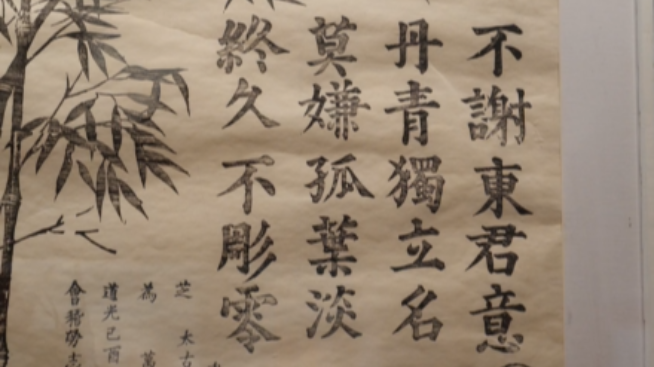 不謝東君意
丹青獨立名
莫嫌孤葉淡
終久不彫零
芝 太古
為 萬
道光己酉
會稽勞